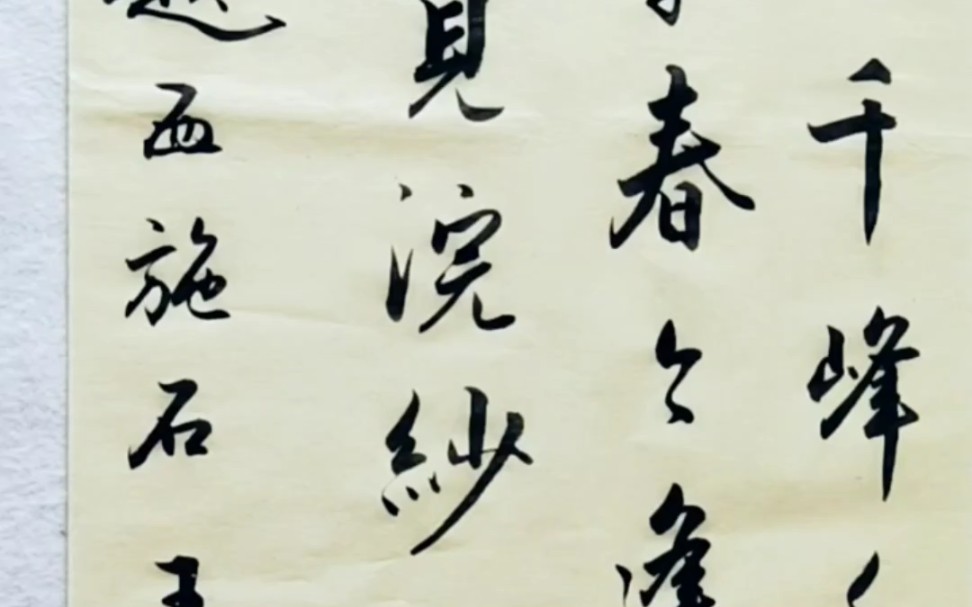 千峰
春今逢
見浣紗
西施石